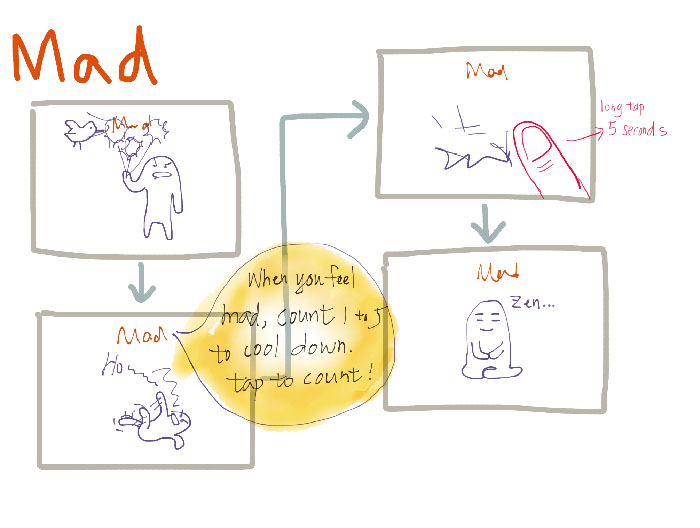 Mad
Mad
Mad
When you feel
mad, count 1 to 5
to cool down.
tap to count!
Mad
long tap
5 seconds
Mad
Zen...